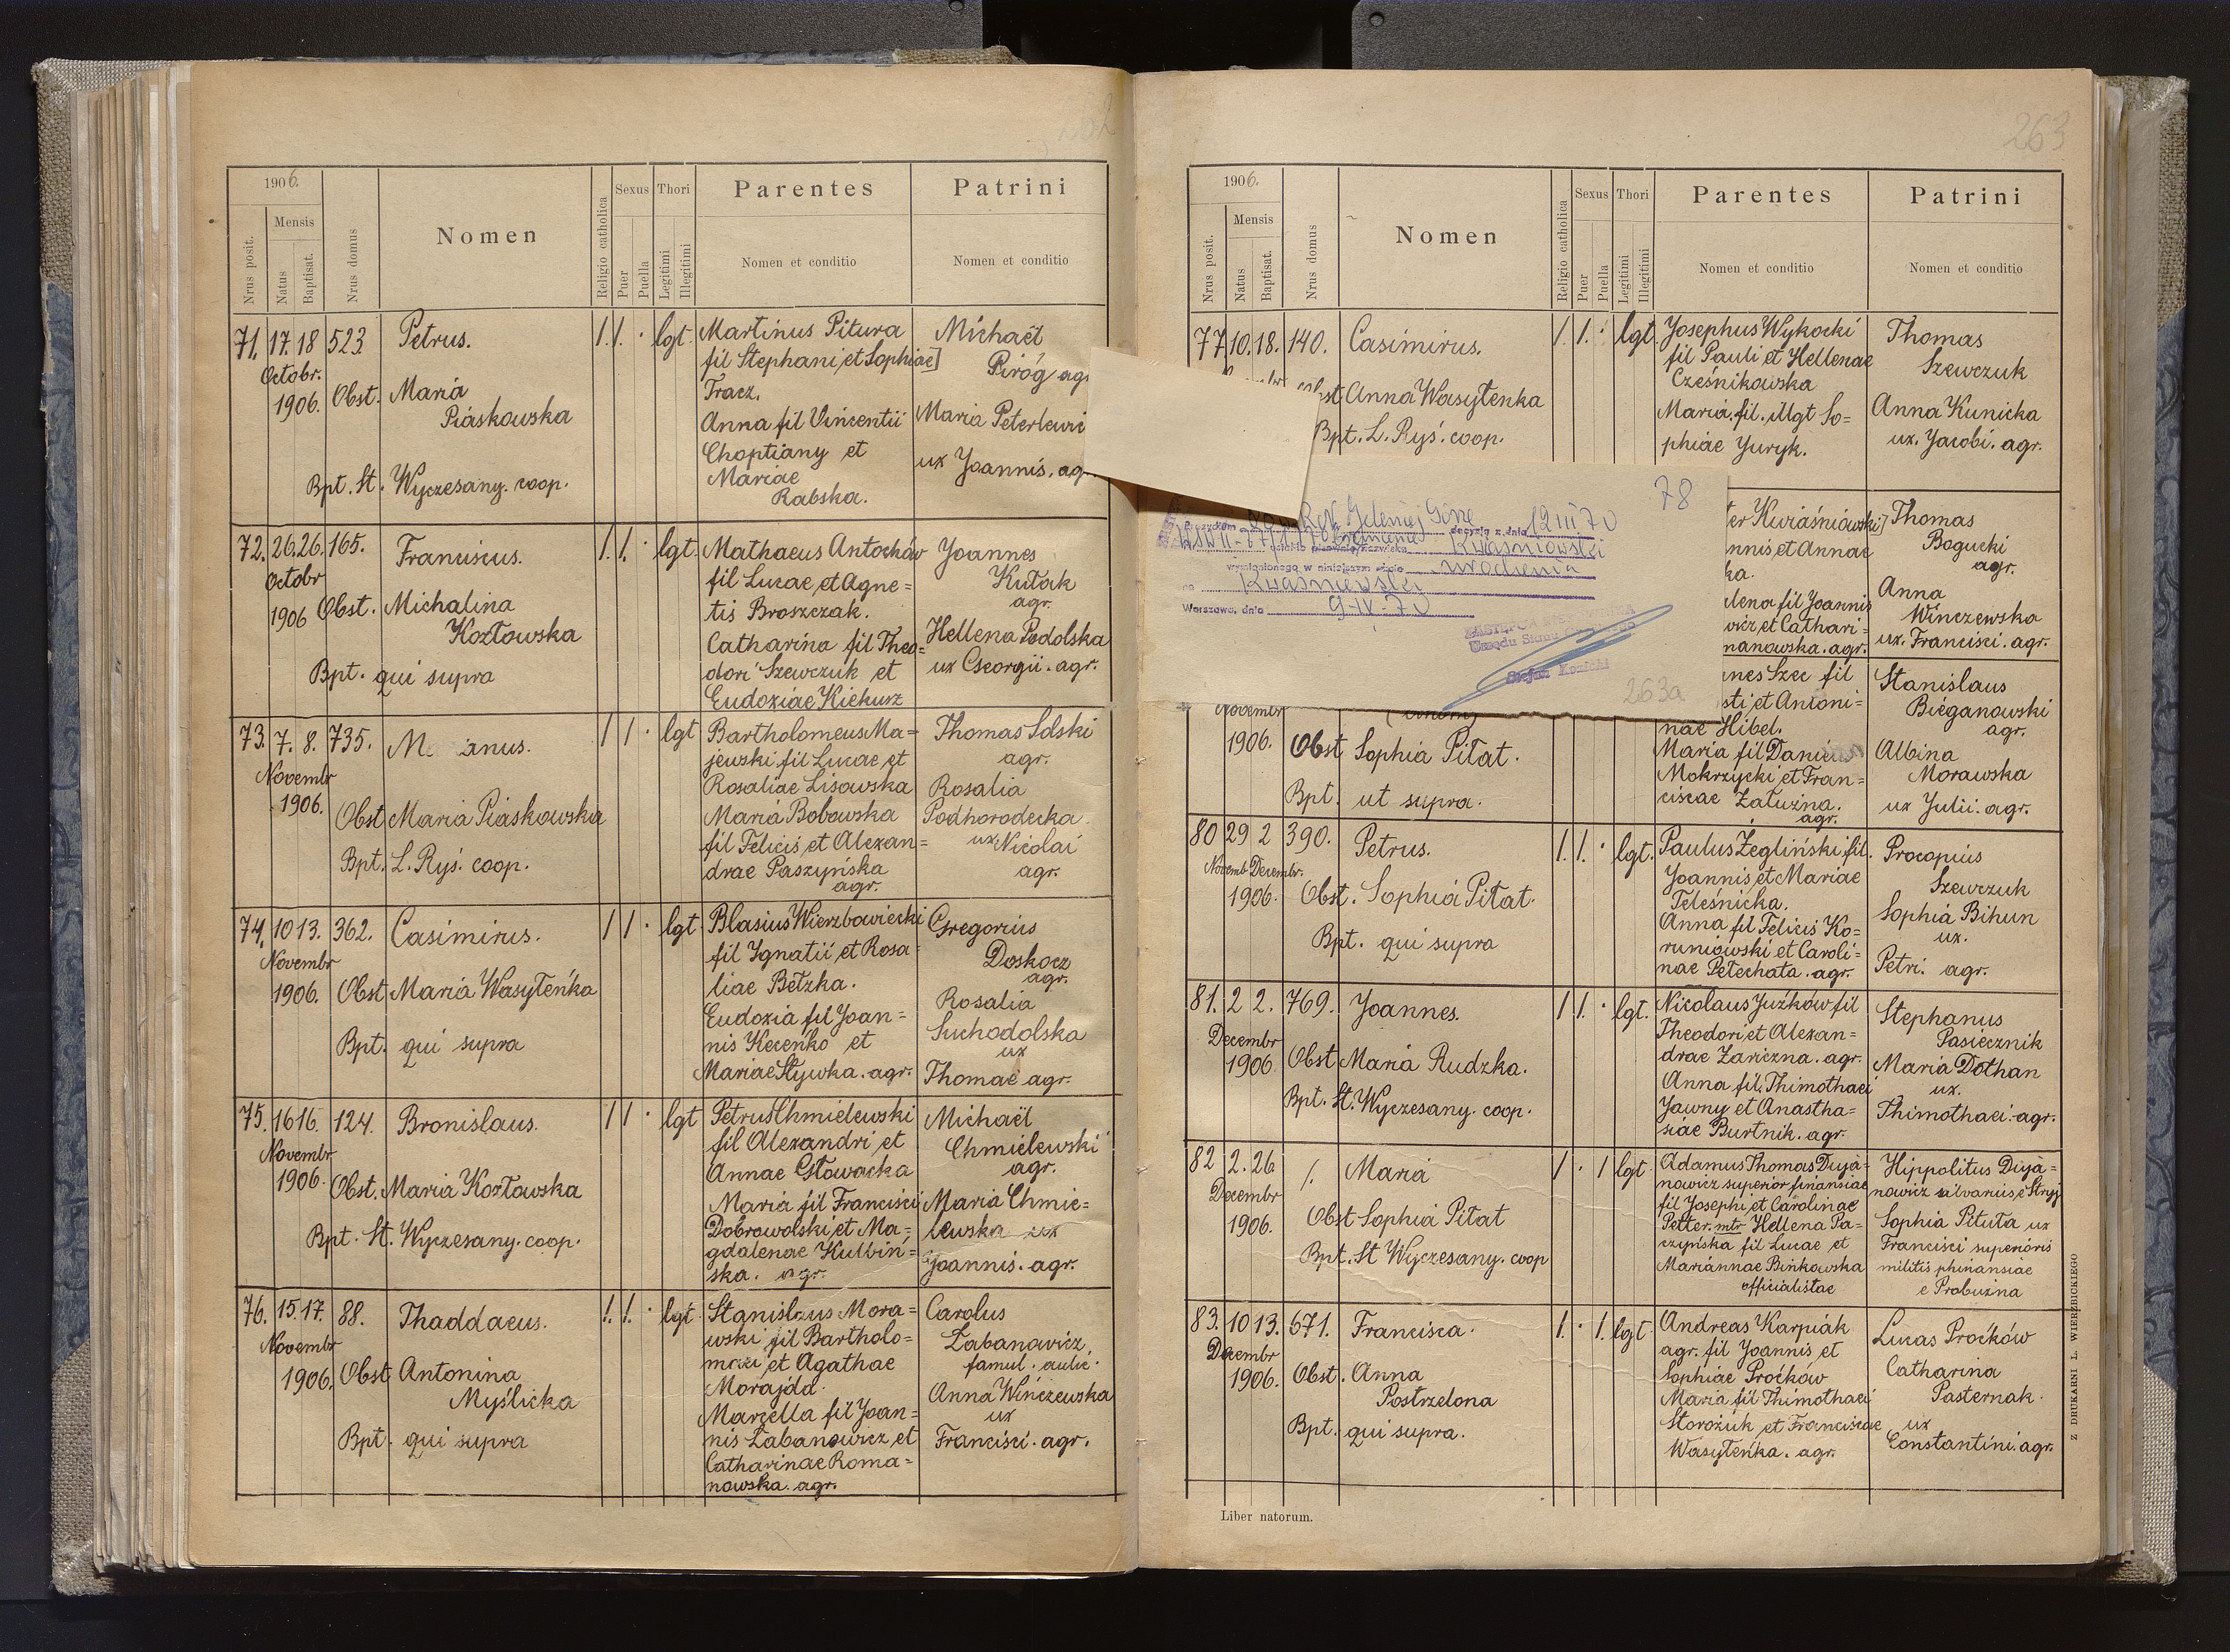 1906.
Nrus posit.
Mensis
Natus
Baptisat.
Nrus domus
Nomen
Religio catholica
Sexus
Puer
Puella
Thori
Legitimi
Illegitimi
Parentes
Nomen et conditio
Patrini
Nomen et conditio
71. 17. 18 523. Petrus. 1. 1. · lgt.
Octobr.
1906. Obst. Maria
Piaskowska
Bpt. St. Wyczesany. coop.
Martinus Pitura
fil Stephani et Sophiae]
Tracz.
Anna fil Vincentii
Choptiany et
Mariae
Rabska.
Michaël
Piróg
Maria
ux Joannis.
72. 26. 26. 165. Franciscus. 1. 1. · lgt.
Octobr
1906 Obst. Michalina
Kozłowska
Bpt. qui supra
Mathaeus Antochów
fil Lucae et Agne=
tis Broszczak.
Catharina fil Theo=
dori Szewczuk et
Eudoxiae Kiekurz
Joannes
Kutak
agr.
Hellena Podolska
ux Georgii. agr.
73. 7. 8. 735. 1 1 · lgt
Novembr
1906.
Obst Maria Piaskowska
Bpt. L. Ryś. coop.
Bartholomeus Ma=
jewski fil Lucae et
Rosaliae Lisowska
Maria Bobowska
fil Felicis et Alexan=
drae Paszyńska
agr.
Thomas Solski
agr.
Rosalia
Podhorodecka
ux Nicolai
agr.
74. 10 13. 362. Casimirus. 1 1 · lgt
Novembr
1906. Obst Maria Wasyłeńka
Bpt. qui supra
Blasius Wierzbowiecki
fil Ignatii et Rosa=
liae Bełzka.
Eudoxia fil Joan=
nis Keceńko et
Mariae Stywka. agr.
Gregorius
Doskocz
agr.
Rosalia
Suchodolska
ux
Thomae agr.
75. 16 16. 124. Bronislaus. 1 1 · lgt
Novembr
1906. Obst. Maria Kozłowska
Bpt. St. Wyczesany. coop.
Petrus Chmielewski
fil Alexandri et
Annae Głowacka
Maria fil Francisci
Dobrowolski et Ma=
gdalenae Kulbin=
ska. agr.
Michaël
Chmielewski
agr.
Maria Chmie=
lewska ux
Joannis. agr.
76. 15. 17. 88. Thaddaeus. 1. 1. · lgt
Novembr
1906. Obst Antonina
Myślicka
Bpt. qui supra
Stanislaus Mora=
wski fil Bartholo=
maei et Agathae
Morajda.
Marcella fil Joan=
nis Zabanowicz et
Catharinae Roma=
nowska. agr.
Carolus
Zabanowicz,
famul. aulic.
Anna Winczewska
ux
Francisci. agr.
263
1906.
Nrus posit.
Mensis
Natus
Baptisat.
Nrus domus
Nomen
Religio catholica
Sexus
Puer
Puella
Thori
Legitimi
Illegitimi
Parentes
Nomen et conditio
Patrini
Nomen et conditio
77 10. 18. 140. Casimirus. 1. 1. · lgt
Anna Wasyłenka
Bpt. L. Ryś. coop.
Josephus Wykocki
fil Pauli et Hellenae
Cześnikowska
Maria. fil. Illgt So=
phiae Juryk.
Thomas
Szewczuk
Anna Kunicka
ux. Jacobi. agr.
78
Jeleniej Górze decyzją z dnia 12 III 70
Kwaśniowski
wymienionego w niniejszym akcie urodzenia
na Kwaśniewski
Warszawa, dnia 9-IV-70
Urzędu Stanu
Stefan Konicki
263a
nnis et Annae
fil Joannis
et Cathari=
nanowska. agr.
Thomas
Bogucki
agr.
Anna
Winczewska
ux. Francisci. agr.
Novembr
1906. Obst Sophia Pitat.
Bpt. ut supra.
Szec fil
et Antoni=
nae Hibel.
Maria fil
Mokrzycki et Fran=
ciscae Załużna.
agr.
Stanislaus
Bieganowski
agr.
Albina
Morawska
ux Julii. agr.
80 29 2 390. Petrus. 1. 1. · lgt.
Novemb Decembr.
1906. Obst. Sophia Pitat.
Bpt. qui supra
Paulus Zegliński fil.
Joannis et Mariae
Teleśnicka.
Anna fil Felicis Ko=
runiowski et Caroli=
nae Petechata. agr.
Procopius
Szewczuk
Sophia Bihun
ux.
Petri. agr.
81. 2 2. 769. Joannes. 1 1. · lgt.
Decembr
1906. Obst Maria Rudzka.
Bpt. St. Wyczesany. coop.
Nicolaus Juźków fil
Theodori et Alexan=
drae Zariczna. agr.
Anna fil. Thimothaei
Jawny et Anastha=
siae Burtnik. agr.
Stephanus
Pasiecznik
Maria Dołhan
ux.
Thimothaei. agr.
82 2. 26 /. Maria 1 · 1 lgt
Decembr
1906. Obst Sophia Pitat
Bpt. St Wyczesany. coop
Adamus Thomas Duja=
nowicz superior finansiae
fil Josephi et Carolinae
Petter. mtr Hellena Pa=
czyńska fil Lucae et
Mariannae Bińkowska
officialistae
Hippolitus Duja=
nowicz silvarius e Stryj
Sophia Pituta ux
Francisci superioris
militis phinansiae
e Probuzna
83. 10 13. 671. Francisca. 1. · 1. lgt.
Decembr
1906. Obst. Anna
Postrzelona
Bpt. qui supra.
Andreas Karpiak
agr. fil Joannis et
Sophiae Proćków
Maria fil Thimothaei
Storożuk et Franciscae
Wasyłeńka. agr.
Lucas Proćków
Catharina
Pasternak.
ux
Constantini. agr.
Liber natorum.
Z DRUKARNI L. WIERZBICKIEGO